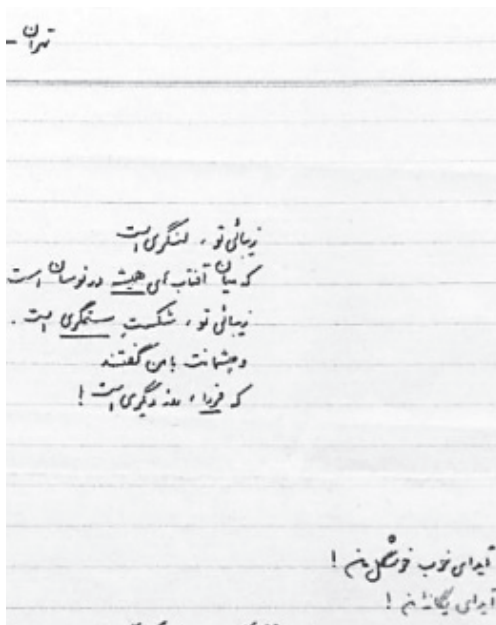 تهران -
زیبائی تو ، لنگری است
که میان آفتاب های همیشه در نوسان است
زیبائی تو ، شکستِ ستمگری است .
و چشمانت با من گفتند
که فردا ، روز دیگری است !
آیدای خوب خوشگل من !
آیدای یگانهٔ من !